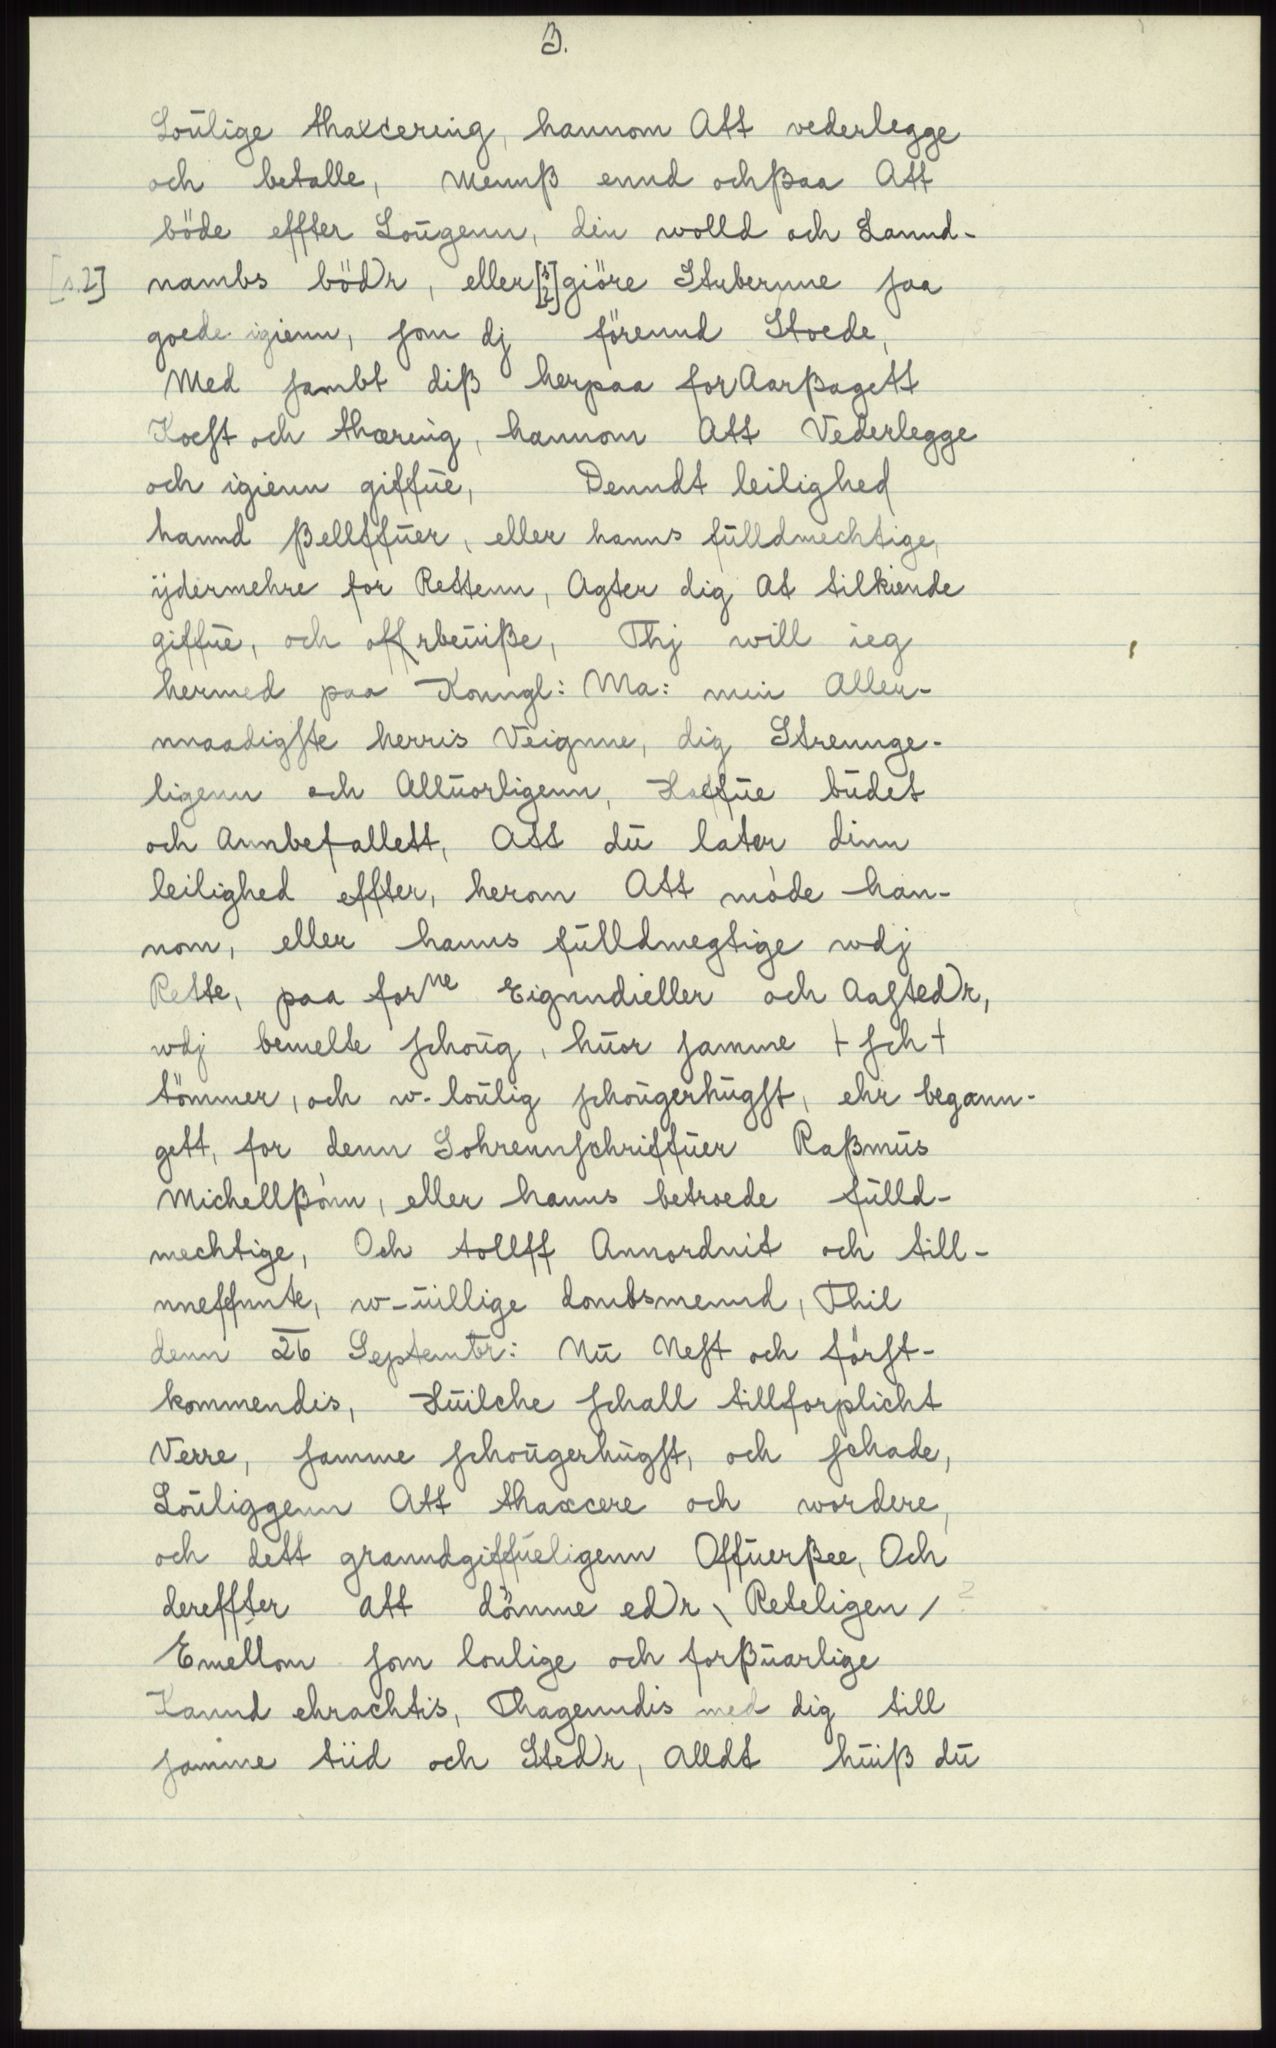 3.
Loulige thaxcering, hannom Att vederlegge
och betalle, Mennß ennd ochßaa Att
böde effter Lougenn, din wolld och Lannd-
[s.2] nambs böd)r, eller [s 2] giöre Stubernne saa
goede igienn, som dj förennd Stoede,
Med sambt diß herpaa for Aarßagett
Kost och thæring, hannom Att Vederlegge
och igienn giffue, Denndt leilighed
hannd ßellffuer, eller hanns fulldmechtige,
ydermehre for Rettenn, Agter dig At tilkiende
giffue, och offrbeuiße, Thj will ieg
hermed paa Konngl: Ma: min Aller-
nnaadigste herris Veignne, dig Strennge-
ligenn och Alluorligenn, Haffue budet
och Annbefallett, Att du later dinn
leilighed effter, herom Att møde han-
nom, eller hanns fulldmegtige wdj
Rette, paa forne Eignndieller och Aasted)r,
wdj bemelte schoug, huor samme + sch +
tömmer, och w-loulig schougerhugst, ehr begann-
gett, for denn Sohrennschriffuer Raßmus
Michellßønn, eller hanns betroede fulld-
mechtige, Och tollff Annordnit och till-
nneffnnte, w-uillige dombsmennd, Thil
denn 26 Septembr: Nu Nest och først-
kommendis, Huilche schall tillforplicht
Verre, samme schougerhugst, och schade,
Louliggenn Att thaxcere och wordere,
och dett granndgiffueligenn Offuerßee, Och
dereffter att dömme ed)r \ Reteligen / ?
Emellom som loulige och forßuarlige
Kannd ehrachtis, Thagenndis med dig till
samme tiid och Sted)r, Alldt huiß du